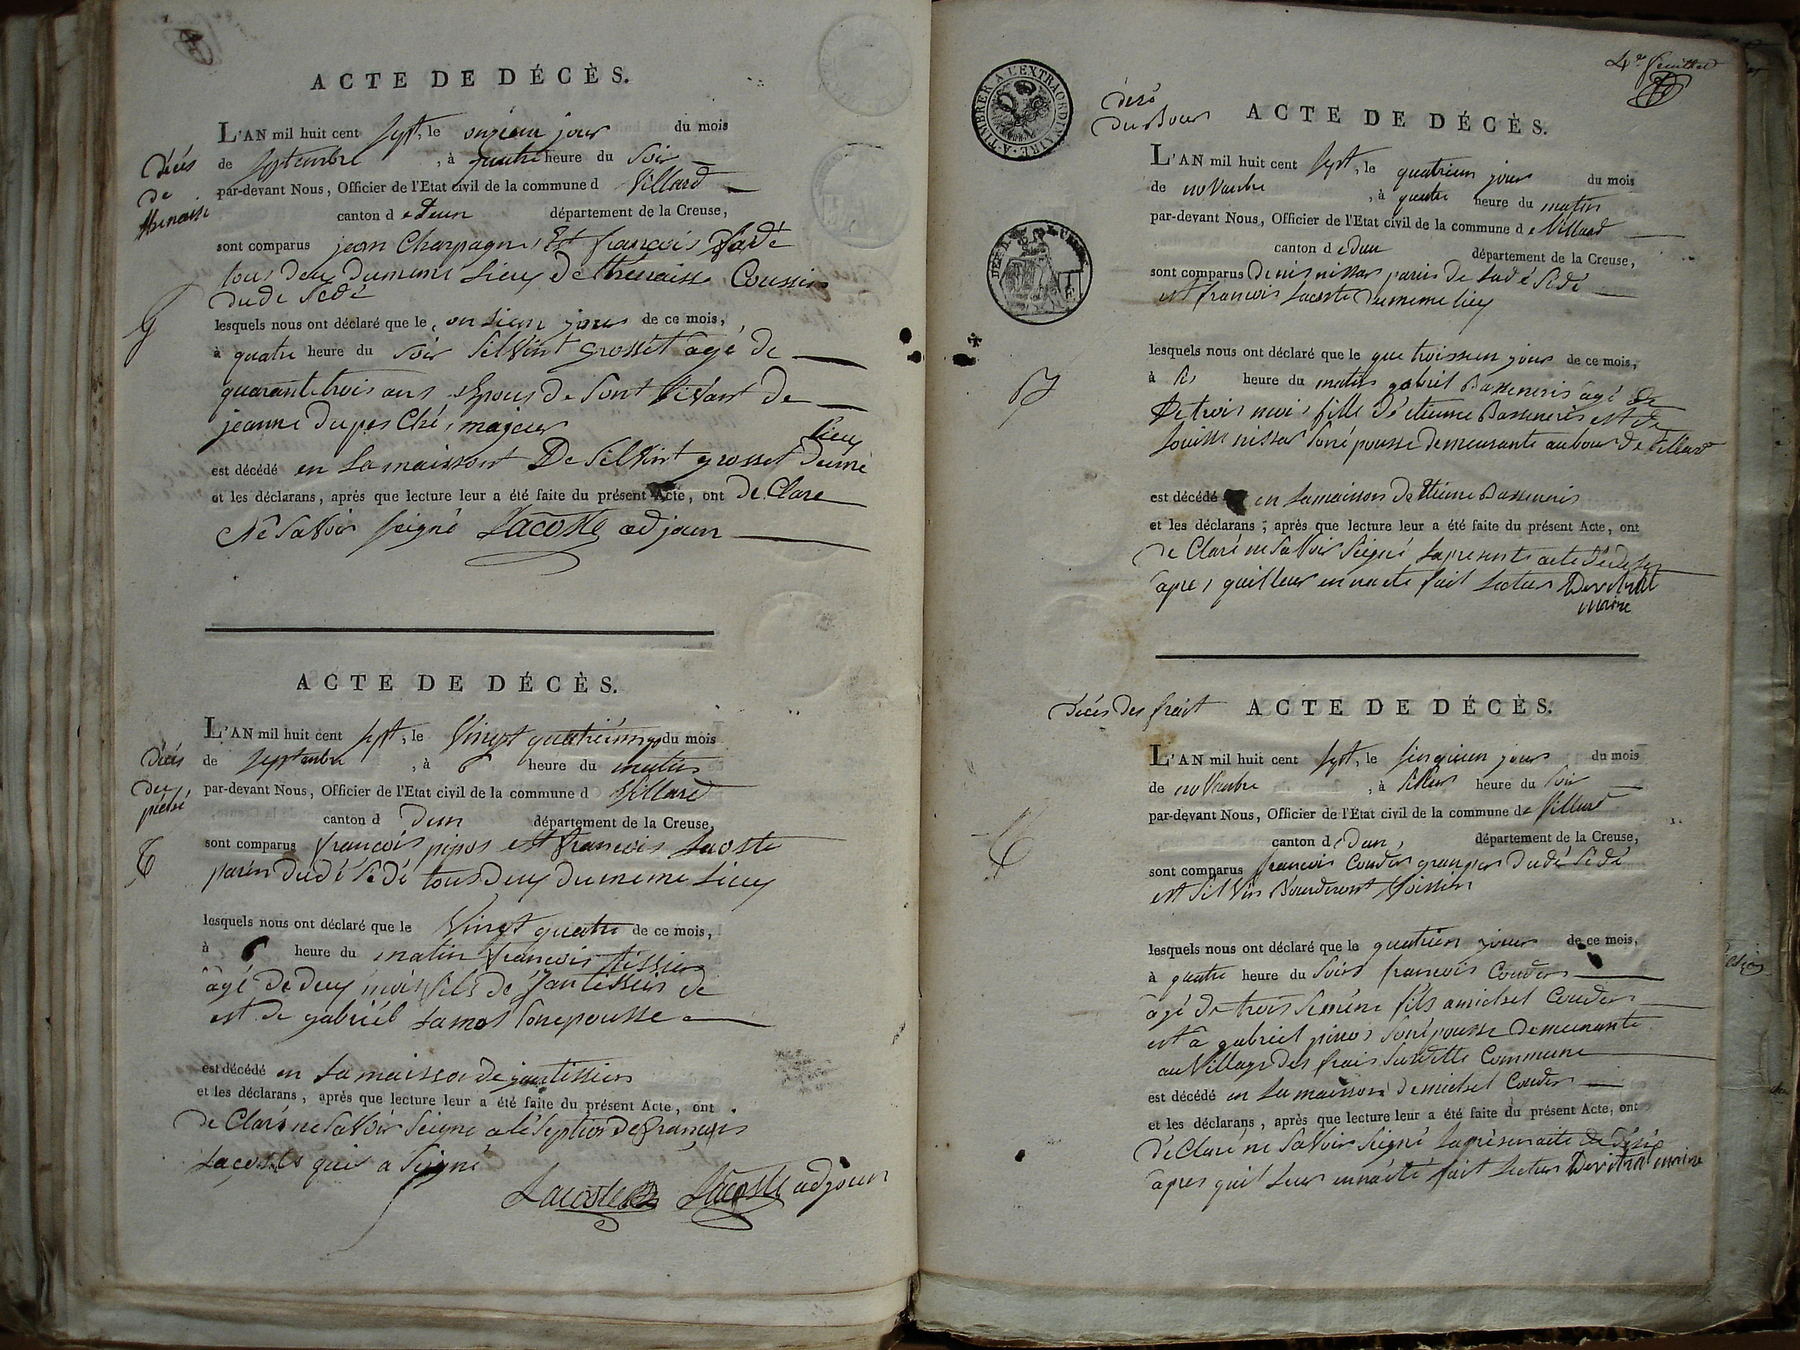 ACTE DE DÉCÈS.
L'AN mil huit cent sept, le onzieme jour du mois
de septembre, à quatre heure du soir
par-devant Nous, Officier de l'Etat civil de la commune d Villard
canton d e Dun département de la Creuse,
sont comparus jean Charpagne est francois
tous deux dumeme Lieux de Coussin
du de Sédé
lesquels nous ont déclaré que le onsieme jour de ce mois,
à quatre heure du soir Silvint grosset agé de
quarante trois ans epoux de sont vivant de
jeanne du pes majeur
lieux
est décédé en La maissont De Silvint grosset dumé
et les déclarans, après que lecture leur a été faite du présent Acte, ont de Clare
Né savoir seigné Lacoste adjoin
décés
de
thenaise
ACTE DE DÉCÈS.
L'AN mil huit cent sept, le Vingt quatriéme du mois
de septembre, à 6 heure du matin
par-devant Nous, Officier de l'Etat civil de la commune d Villard
canton d Dun département de la Creuse,
sont comparus francois pinos est francois Lacoste
parén dudé Sedé tous deux du meme Lieux
lesquels nous ont déclaré que le Vingt quatre de ce mois,
à 6 heure du matin francois tissier
agé de deux mois fils de de
est de gabriél Lamos Sonepousse
est décédé en La maison de
et les déclarans, après que lecture leur a été faite du présent Acte, ont
de Claré ne savoir Seigne a léseption de françois
Lacoste qui a Seigné
Lacoste Lacoste adjoin
décés
du
4e feuillet
décé
du Bour
ACTE DE DÉCÈS.
L'AN mil huit cent sept, le quatrieme jour du mois
de novembre, à quatre heure du matin
par-devant Nous, Officier de l'Etat civil de la commune d e Villard
canton d e dun département de la Creuse,
sont comparus Denis nissar parin de Sedé
est francois Lacoste dumeme lieu
lesquels nous ont déclaré que le que troisieme jour de ce mois,
à heure du matin gabriel agé de
De trois mois fille d'étienne est de
Louisse nissar Sonépousse demeurante au bour de Villard
est décédé en Lamaison de
et les déclarans, après que lecture leur a été faite du présent Acte, ont
de Claré ne savoir Seigné
apres quil leur en na eté fait Lecture
maire
A TIMBRER A L'EXTRAORDINAIRE
décés des frait
ACTE DE DÉCÈS.
L'AN mil huit cent sept, le sinquieme jour du mois
de novembre, à heure du soir
par-devant Nous, Officier de l'Etat civil de la commune d e Villard
canton d dun, département de la Creuse,
sont comparus francois Couder granper dudé Sedé
est Silvin Voissin
lesquels nous ont déclaré que le quatrieme jour de ce mois,
à quatre heure du Soir francois Couder
agé de trois Seméne fils a michel Couder
est a gabriel pinos Sonépousse demeurante
au Village des frais Commune
est décédé en La maison de michel Couder
et les déclarans, après que lecture leur a été faite du présent Acte, ont
dé Claré ne Savoir Seigné
apres quil leur en na été fait Lecture maire